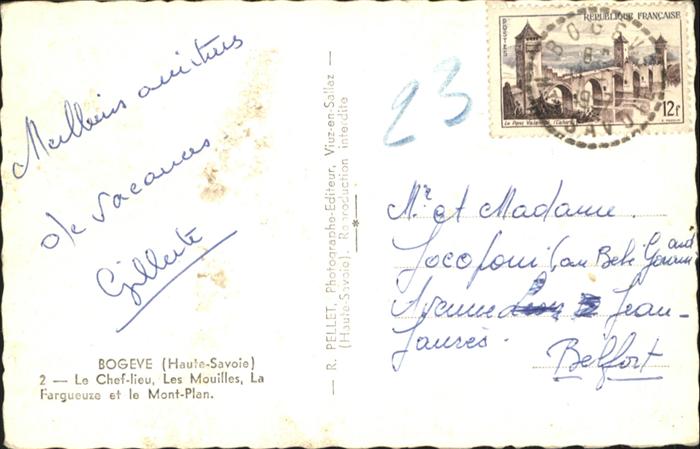 Meilleurs amitiés
de vacances
Gillette
BOGEVE (Haute-Savoie)
2 — Le Chef-lieu, Les Mouilles, La
Fargueuze et le Mont-Plan.
— R. PELLET, Photographe-Editeur, Viuz-en-Sallaz —
(Haute-Savoie). Reproduction interdite
23
POSTES
REPUBLIQUE FRANÇAISE
12f
Le Pont Valentré (Cahors)
BOGEVE
SAVOIE
Mr et Madame.
(au Bel
Avenue Jean-
Jaurès.
Belfort